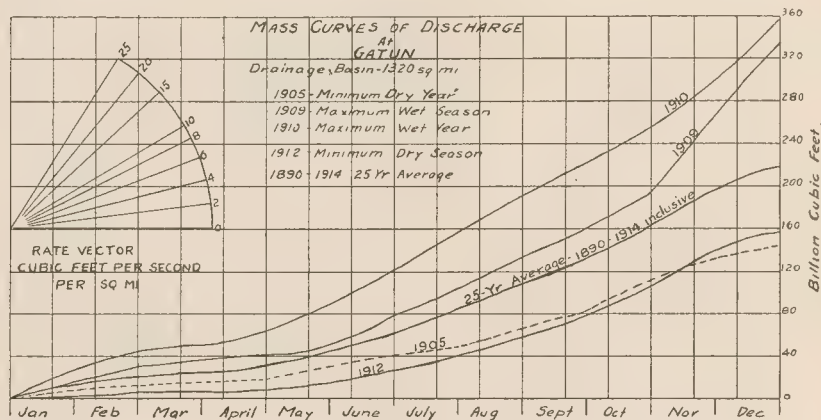 MASS CURVES OF DISCHARGE
At
GATUN
Drainage, Basin-1320 sq mi
1905-Minimum Dry Year
1909-Maximum Wet Season
1910-Maximum Wet Year
1912-Minimum Dry Season
1890-1914 25 Yr Average
25
20
15
10
8
6
4
2
0
RATE VECTOR
CUBIC FEET PER SECOND
PER SQ MI
1910
1909
25-Yr Average-1890-1914 Inclusive
1905
1912
360
320
280
240
200
160
120
80
40
0
Billion Cubic Feet.
Jan Feb Mar April May June July Aug Sept Oct Nov Dec